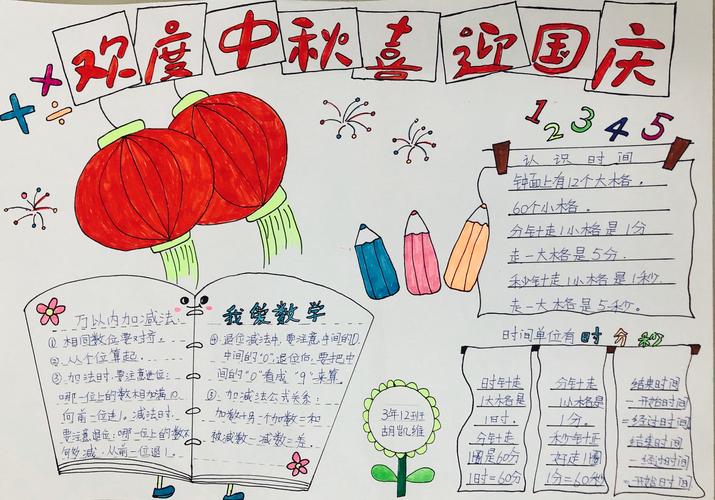 欢度中秋喜迎国庆
1 2 3 4 5
认识时间
钟面上有12个大格。
60个小格。
分针走1小格是1分
走一大格是5分。
秒针走1小格是1秒。
走一大格是5秒。
万以内加减法:
①相同数位要对齐。
②从个位算起。
③加法时.要注意进位:
哪一位上的数相加满10
向前一位进1。减法时.
要注意退位:哪一位上的数不
何够减.从前一位退1。
我爱数学
④退位减法中.要注意中间的0.
中间的“0”退位后.要把中
间的“0”看成“9”来算。
⑤.加减法公式关系:
加数+另一个加数=和
被减数-减数=差.
3年12班
胡凯维
时间单位有时分秒
时针走
1大格是
1时.
分针走
1圈是60分
1时=60分
分针走
1小格是
1分。
秒针正
好走1圈
1分=60秒
结束时间
-开始时间
=经过时间
结束时间
-经过时间
=开始时间